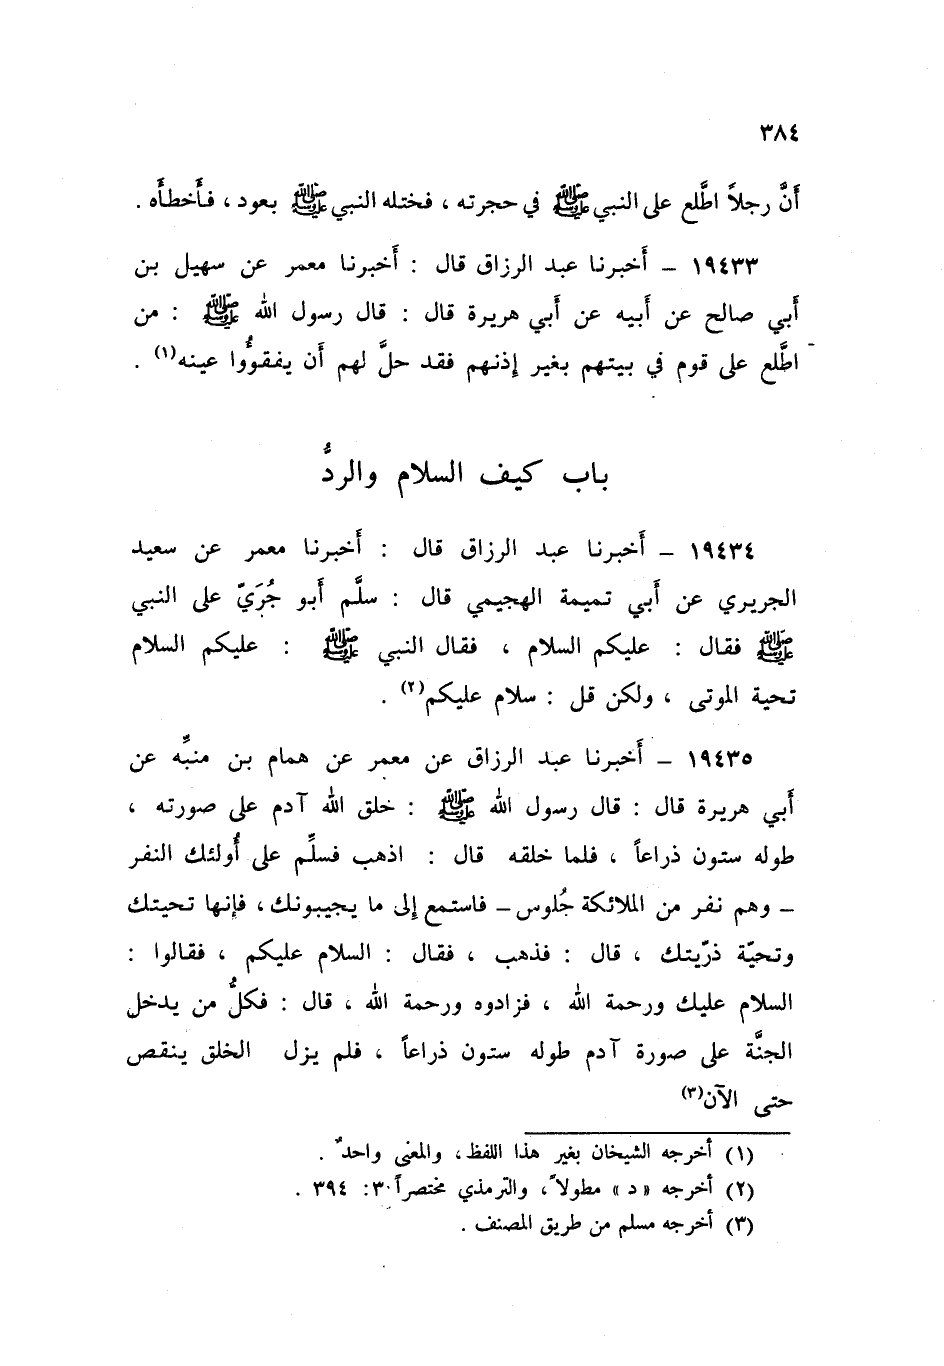 ٣٨٤
أَنَّ رجلاً اطَّلع على النبي ﷺ في حجرته ، فختله النبي ﷺ بعود ، فأَخطأَه .
١٩٤٣٣ – أَخبرنا عبد الرزاق قال : أَخبرنا معمر عن سهيل بن
أَبي صالح عن أَبيه عن أَبي هريرة قال : قال رسول الله ﷺ : من
اطَّلع على قوم في بيتهم بغير إذنهم فقد حلَّ لهم أَن يفقؤُوا عينه(١) .
باب كيف السلام والردُّ
١٩٤٣٤ – أَخبرنا عبد الرزاق قال : أَخبرنا معمر عن سعيد
الجريري عن أَبي تميمة الهجيمي قال : سلَّم أَبو جُرَيّ على النبي
ﷺ فقال : عليكم السلام ، فقال النبي ﷺ : عليكم السلام
تحية الموتى ، ولكن قل : سلام عليكم(٢) .
١٩٤٣٥ – أَخبرنا عبد الرزاق عن معمر عن همام بن منبِّه عن
أَبي هريرة قال : قال رسول الله ﷺ : خلق الله آدم على صورته ،
طوله ستون ذراعاً ، فلما خلقه قال : اذهب فسلِّم على أُولئك النفر
– وهم نفر من الملائكة جُلوس – فاستمع إلى ما يجيبونك ، فإنها تحيتك
وتحيّة ذرّيتك ، قال : فذهب ، فقال : السلام عليكم ، فقالوا :
السلام عليك ورحمة الله ، فزادوه ورحمة الله ، قال : فكلُّ من يدخل
الجنَّة على صورة آدم طوله ستون ذراعاً ، فلم يزل الخلق ينقص
حتى الآن(٣)
(١) أخرجه الشيخان بغير هذا اللفظ ، والمعنى واحدٌ .
(٢) أخرجه « د » مطولاً ، والترمذي مختصراً ٣: ٣٩٤ .
(٣) أخرجه مسلم من طريق المصنف .